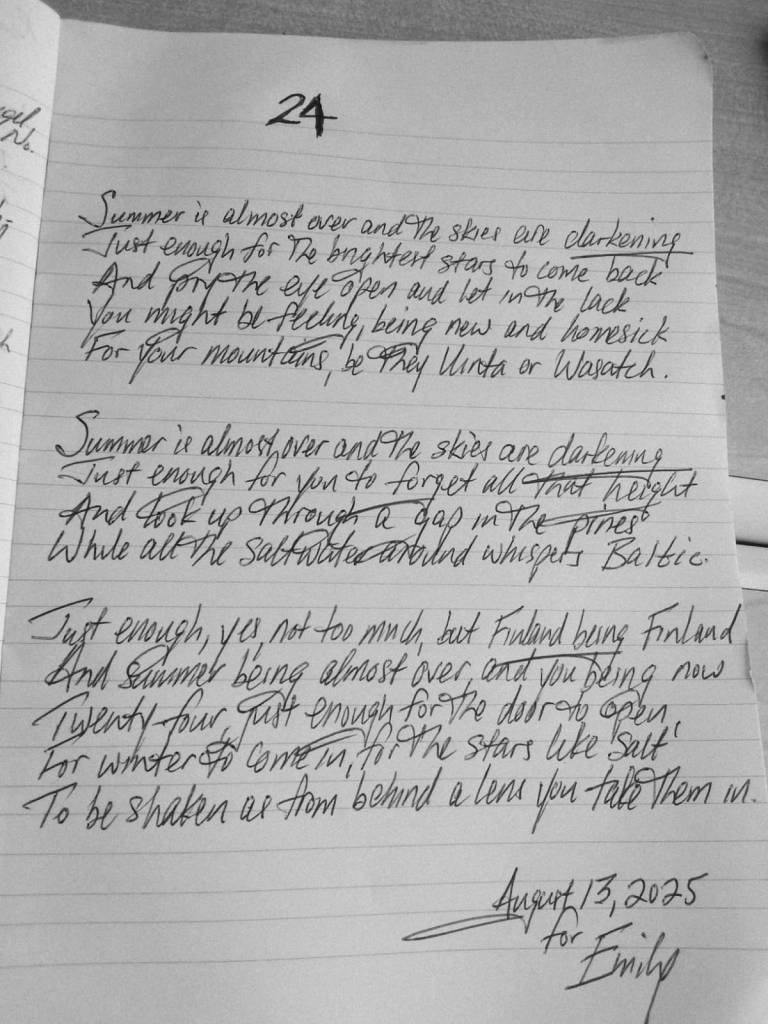 gel
No.
24
Summer is almost over and the skies are darkening
Just enough for the brightest stars to come back
And pry the eye open and let in the lack
You might be feeling, being new and homesick
For your mountains, be they Uinta or Wasatch.
Summer is almost over and the skies are darkening
Just enough for you to forget all that height
And look up through a gap in the pines
While all the saltwater around whispers Baltic.
Just enough, yes, not too much, but Finland being Finland
And summer being almost over, and you being now
Twenty-four, just enough for the door to open,
For winter to come in, for the stars like salt
To be shaken as from behind a lens you take them in.
August 13, 2025
for
Emily